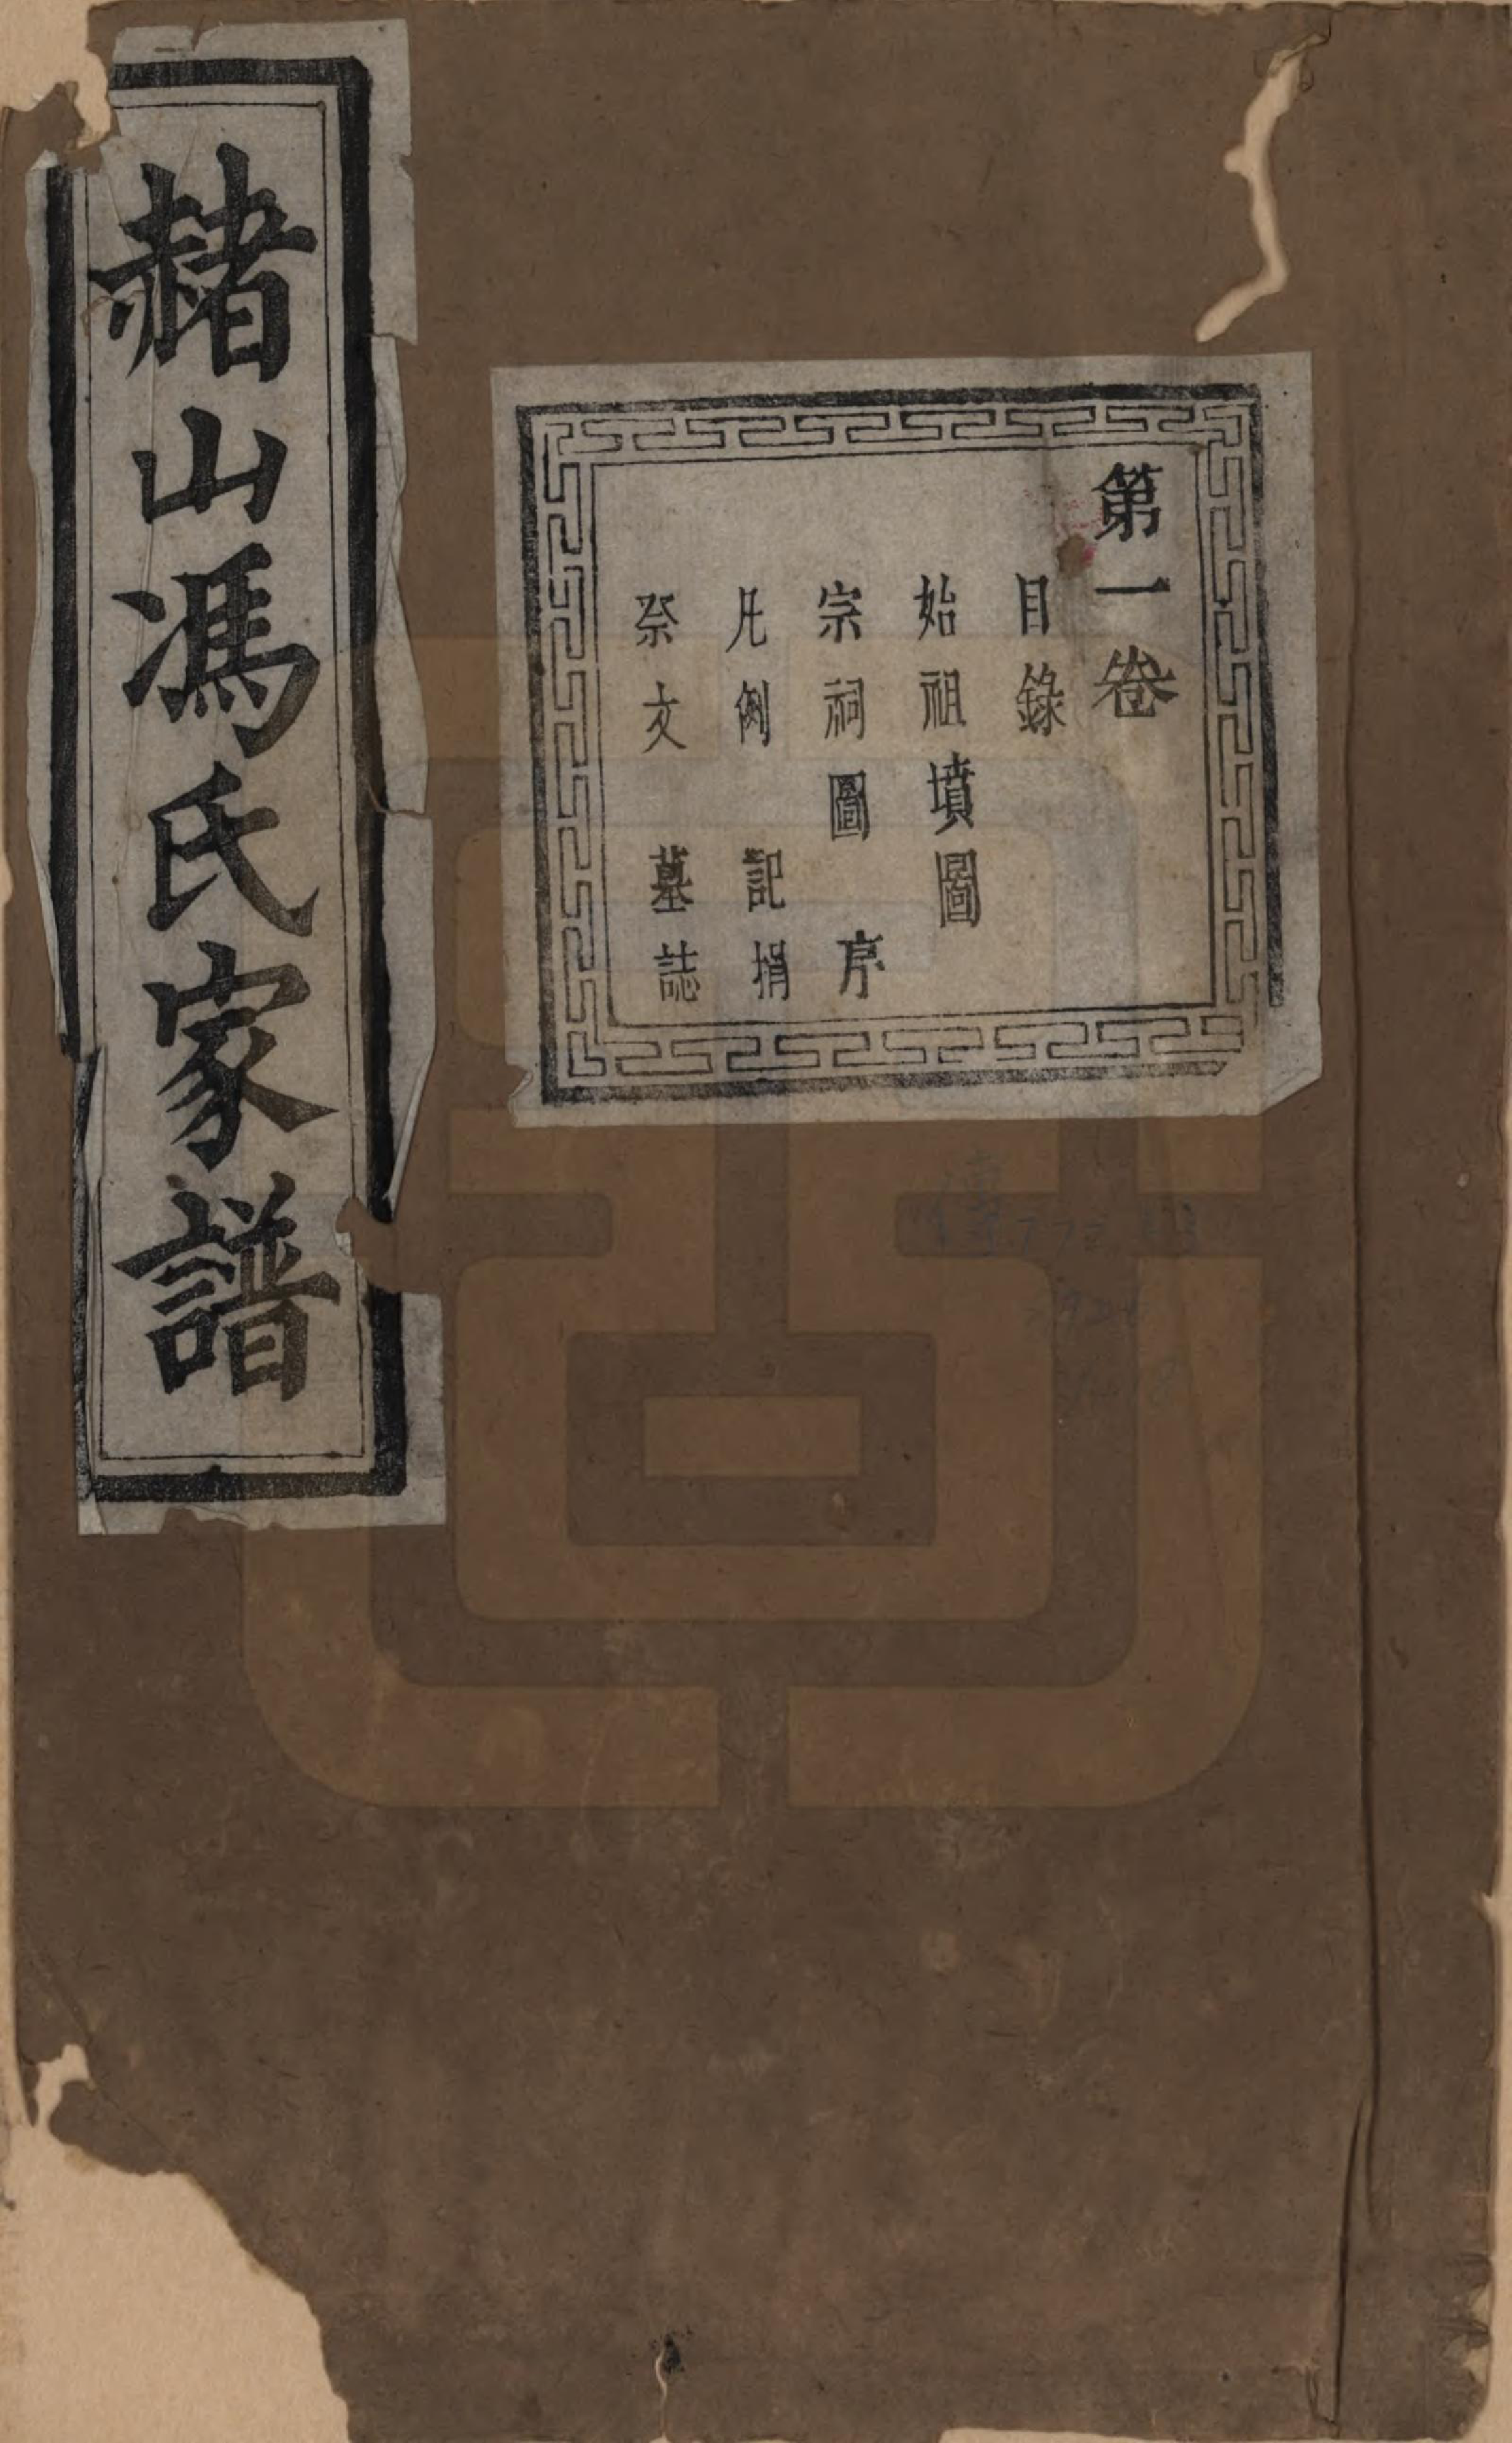 赭山馮氏家譜
第一卷
目錄
始祖墳圖
宗祠圖　序
凡例　記捐
祭文　墓誌